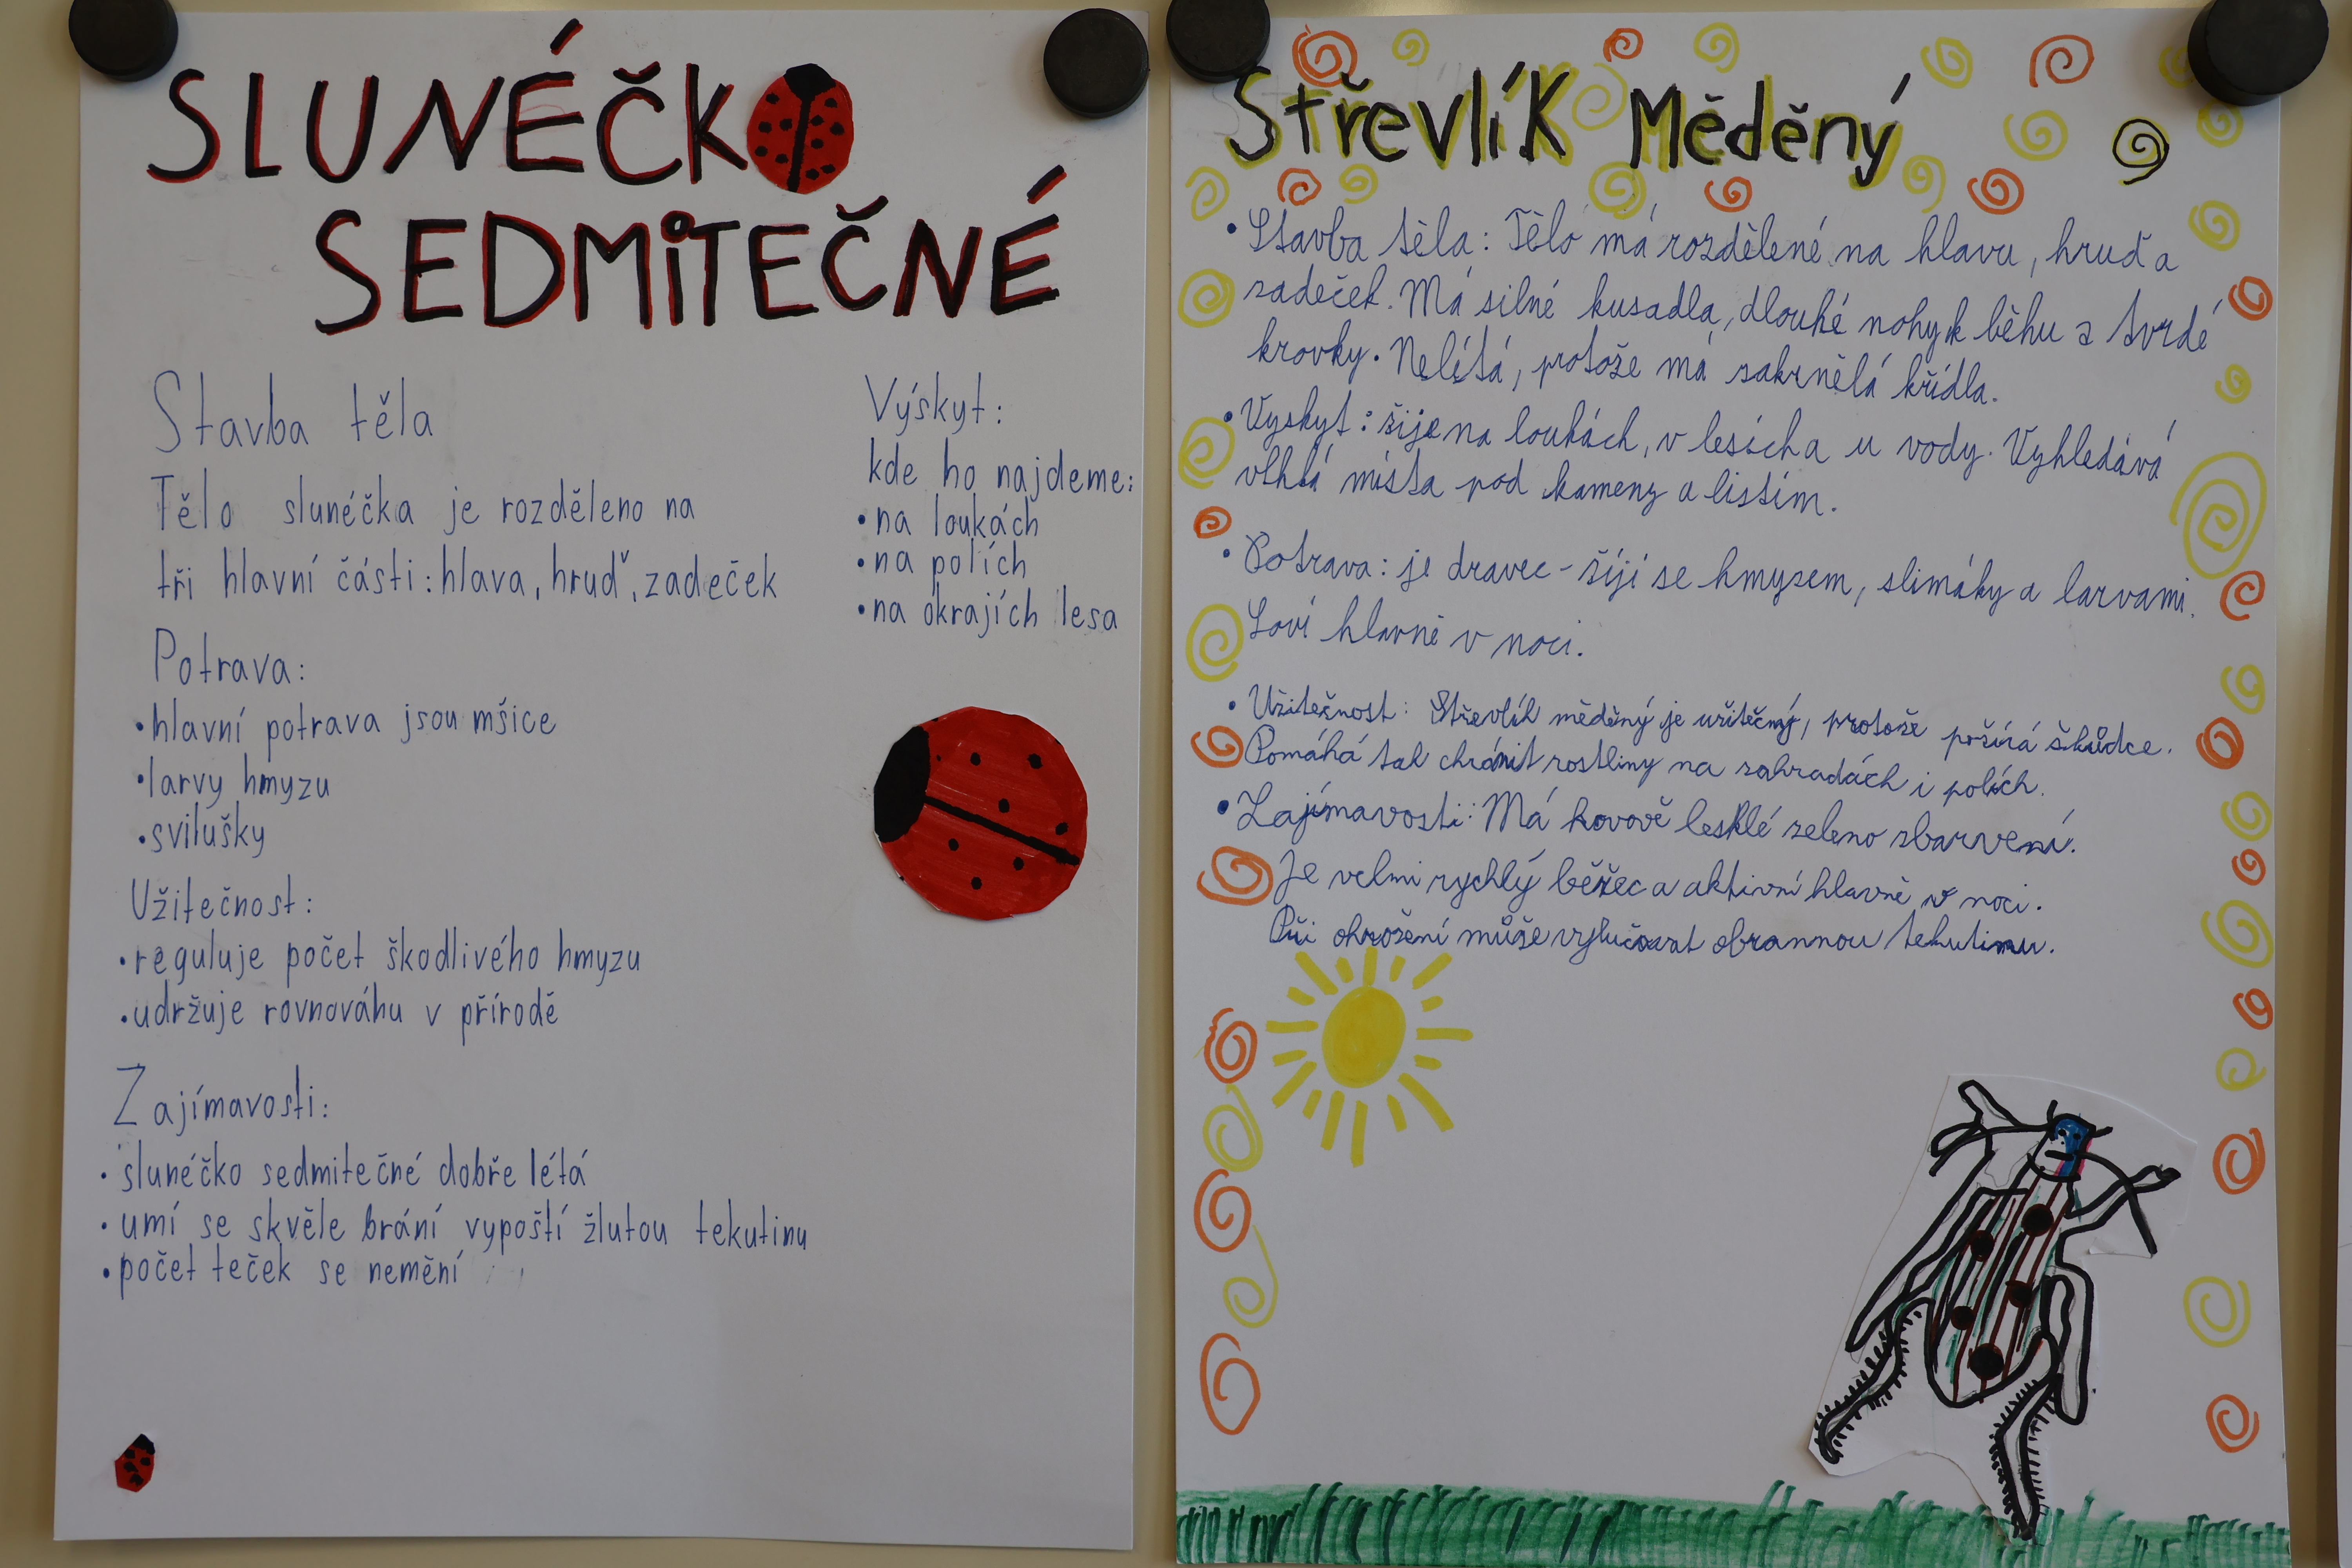 SLUNÉČKO
SEDMITEČNÉ
Stavba těla
Tělo slunéčka je rozděleno na
tři hlavní části: hlava, hruď, zadeček
Potrava:
•hlavní potrava jsou mšice
•larvy hmyzu
•svilušky
Užitečnost:
•reguluje počet škodlivého hmyzu
•udržuje rovnováhu v přírodě
Zajímavosti:
•slunéčko sedmitečné dobře létá
•umí se skvěle brání vypoští žlutou tekutinu
•počet teček se nemění
Výskyt:
kde ho najdeme:
•na loukách
•na polích
•na okrajích lesa
Střevlík Měděný
•Stavba těla: Tělo má rozdělené na hlavu, hruď a
zadeček. Má silné kusadla, dlouhé nohy k běhu a tvrdé
krovky. Nelítá, protože má zakrnělá křídla.
•Vyskyt: žije na loukách, v lesích a u vody. Vyhledává
vlhká místa pod kameny a listím.
•Potrava: je dravec - žijí se hmyzem, slimáky a larvami.
Loví hlavně v noci.
•Užitečnost: Střevlík měděný je užitečný, protože požírá škůdce.
Pomáhá tak chránit rostliny na zahradách i polích.
•Zajímavosti: Má kovově lesklé zeleno zbarvení.
Je velmi rychlý běžec a aktivní hlavně v noci.
Při ohrožení může vylučovat obrannou tekutinu.